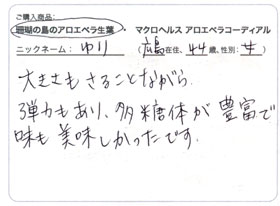 ご購入商品:
珊瑚の島のアロエベラ生葉 ・ マクロヘルス アロエベラコーディアル
ニックネーム: ゆり (広島在住、44歳、性別:女)
大きさもさることながら
弾力もあり、多糖体が豊富で
味も美味しかったです。